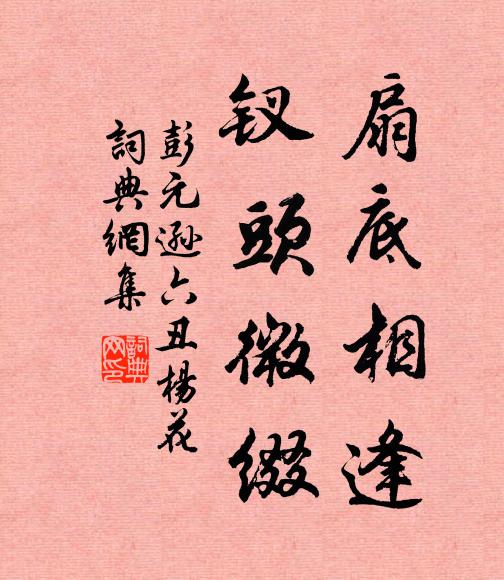 扇底相逢
钗頭微缀
彭元遜六丑楊花
詞典網集
詞典
网印